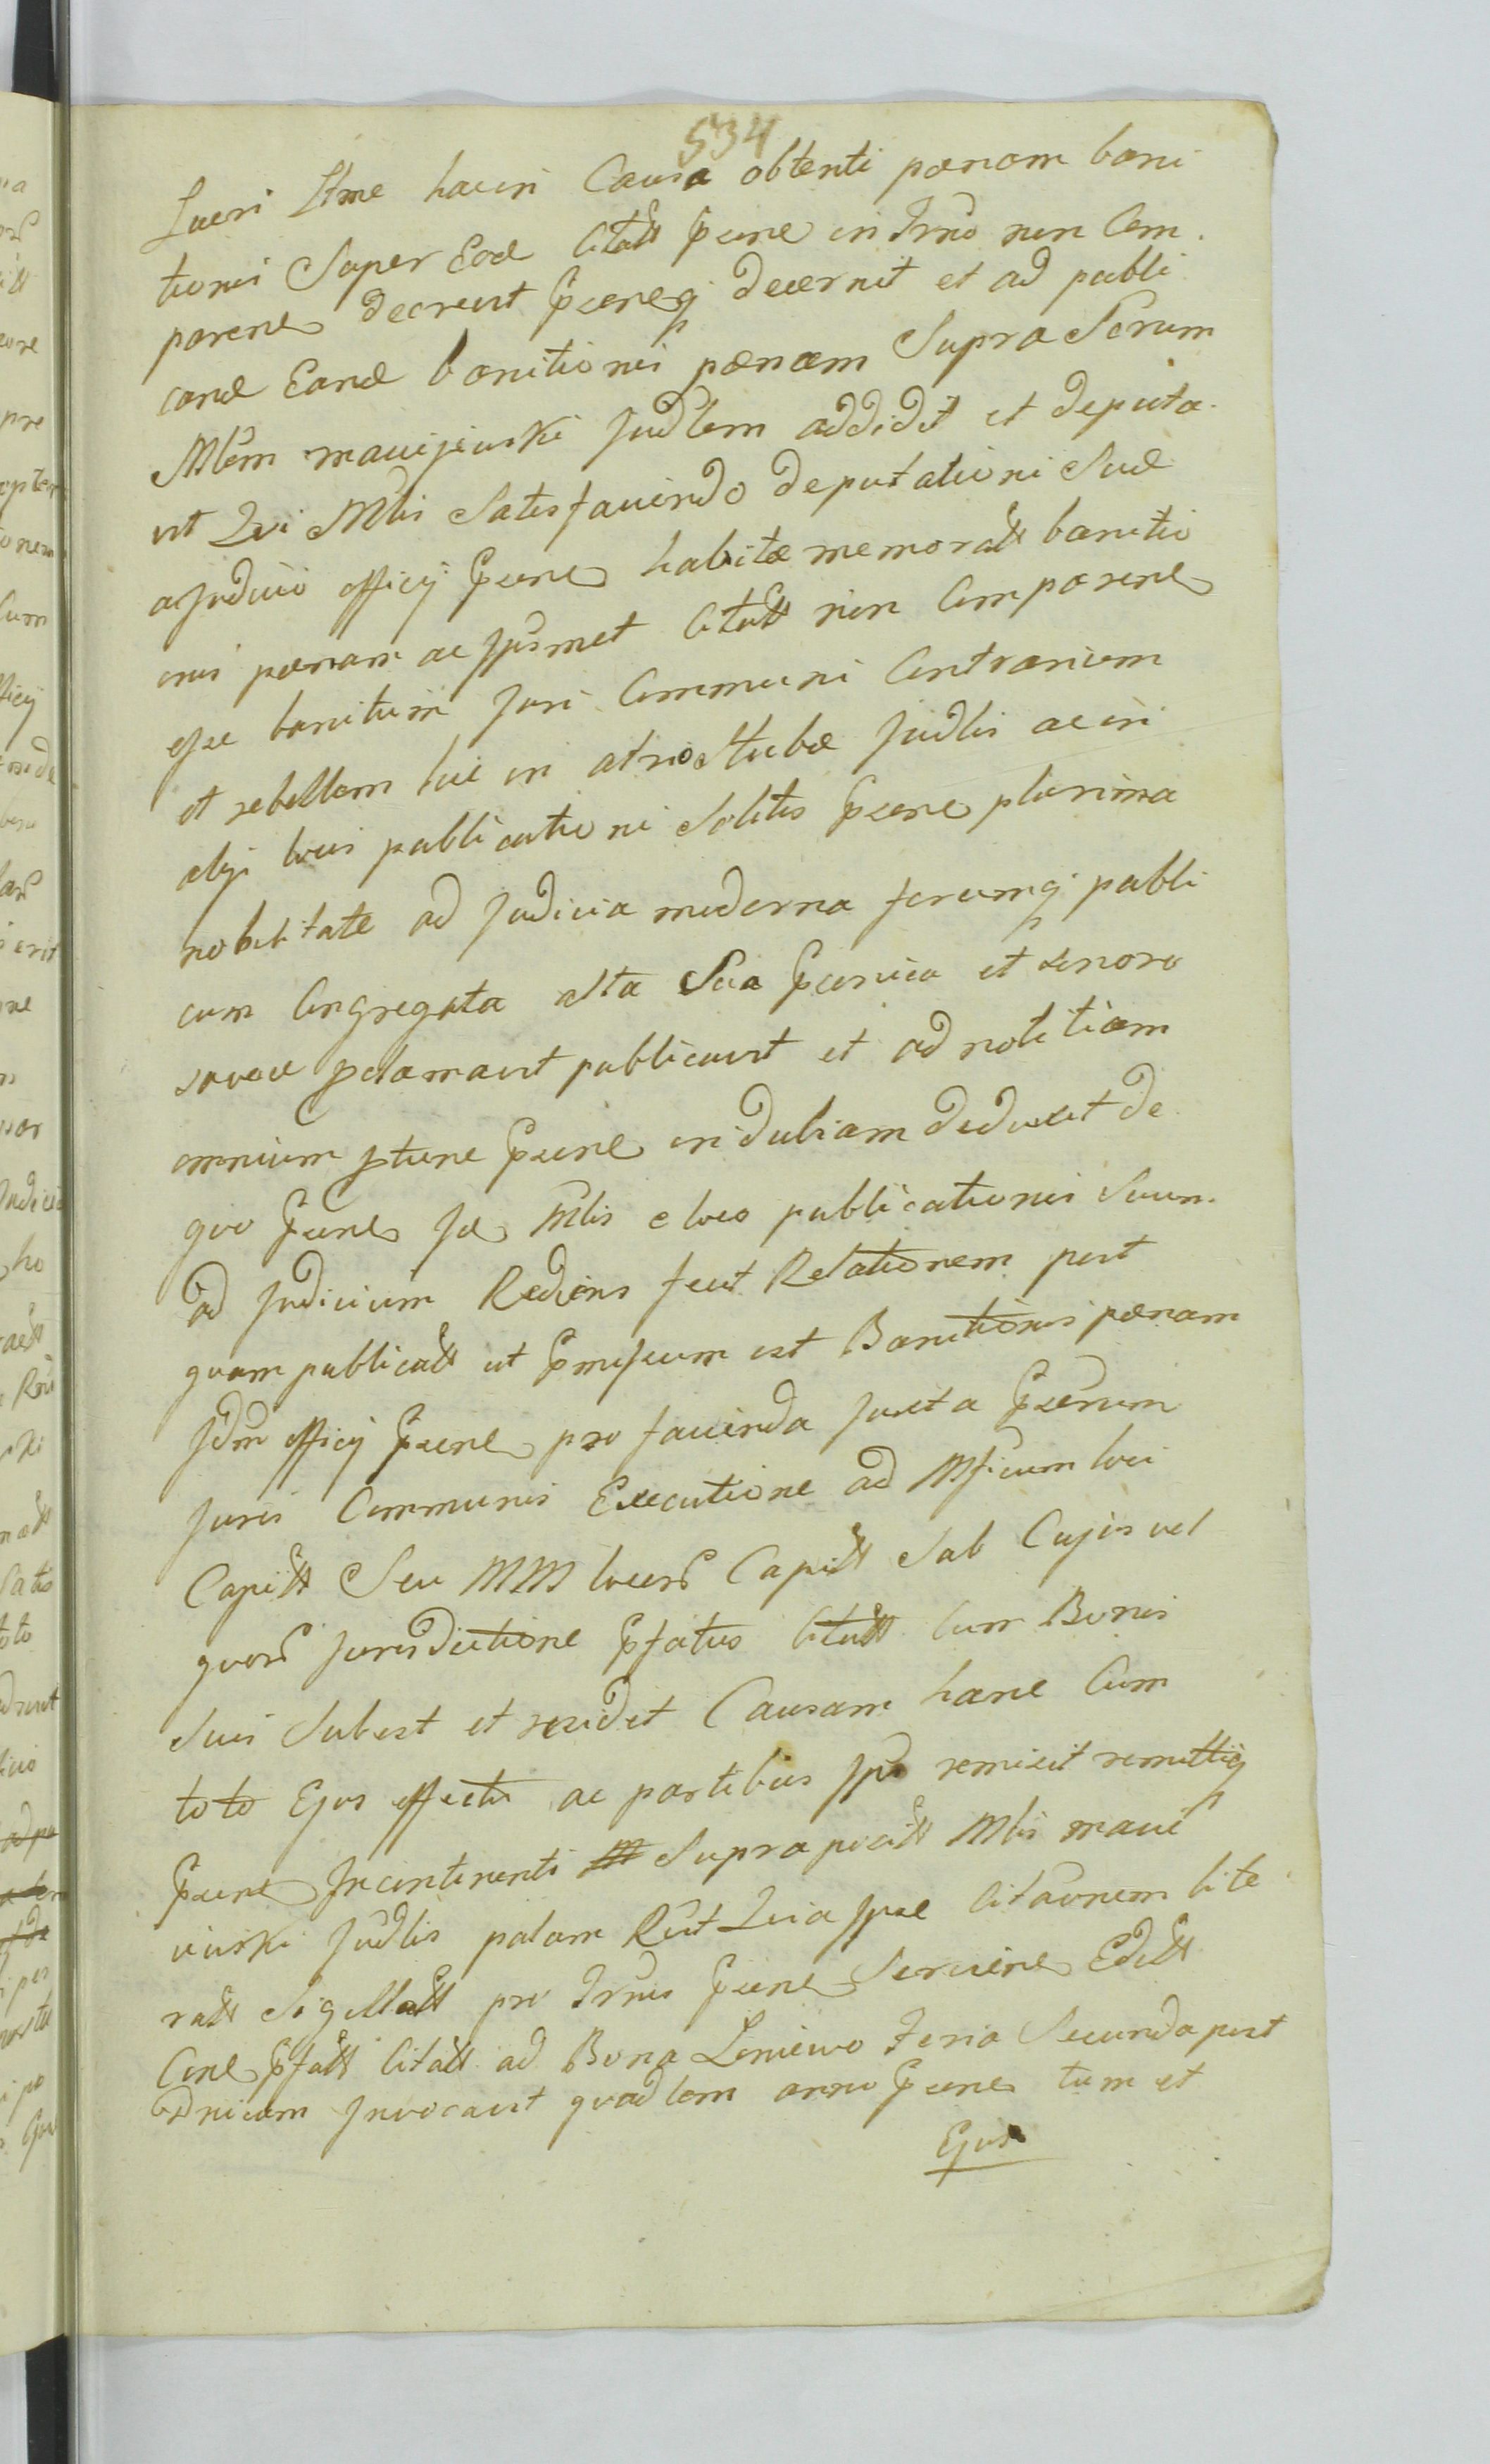 534
Lucri Ltme hacin Causa obtenti pœnam bani
tionis Super Eode Citatt psene in Trno non Com.
parene decrevit pseneq decernit et ad publi
cand Eand banitionis pœnam Supra Scrum
Mlem maciejewski Judlem addidit et deputa.
vit Qui Mlis Satisfaciendo deputationi Suæ
a Judicio officij psene habitæ memoratt banitio
nis pœnam ac Ipsmet Citatt non Comparene
esse banitum Juri Communi Contrarium
et rebellem hic in atrio Stubæ Judlis ac in
alijs locis publicationi Solitis psene plurima
nobilitate ad Judicia moderna forumq publi
cum Congregata alta Sua psenica et sonora
voce pclamavit publicavit et ad notitiam
omnium ptune psene indubiam deduxit de
quo psene Ide Mlis e loco publicationis Suum.
ad Judicium Rediens fecit Relationem post
quam publicatt ut pmissum est Banitionis pœnam
Idm officij psene pro facienda Juxta pserum
Juris Communis Executione ad Mficum loci
Capitt Seu MM locors Capitt Sub Cujus vel
quors Jurisdictione pfatus Citatt Cum Bonis
Suis Subest et residet Causam hanc Cum
toto Ejus effectu ac partibus Ips remisit remittiq
psene Incontinenti Supra positt Mlis macie
iewski Judlis palam Rvit Quia Ipse Citaonem lite
ratt Sigillatt pro Trnis psene Serviene Editt
Cone pfatt Citatt ad Bona Leniewo Feria Secunda post
Dnicam Invocavit quadlem anno psene tum et
Ejus